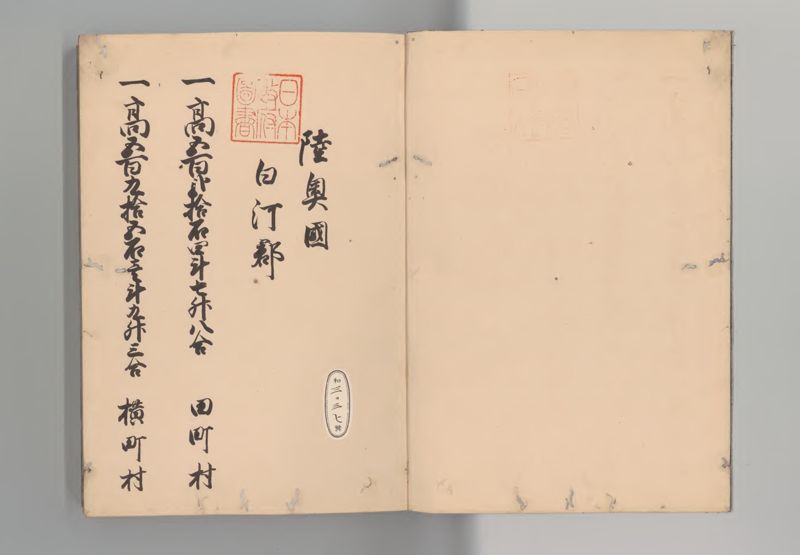 日本政府圖書
陸奥國
白河郡
一高五百弐拾石四斗七升八合 田町村
一高五百九拾五石壱斗九升三合 横町村